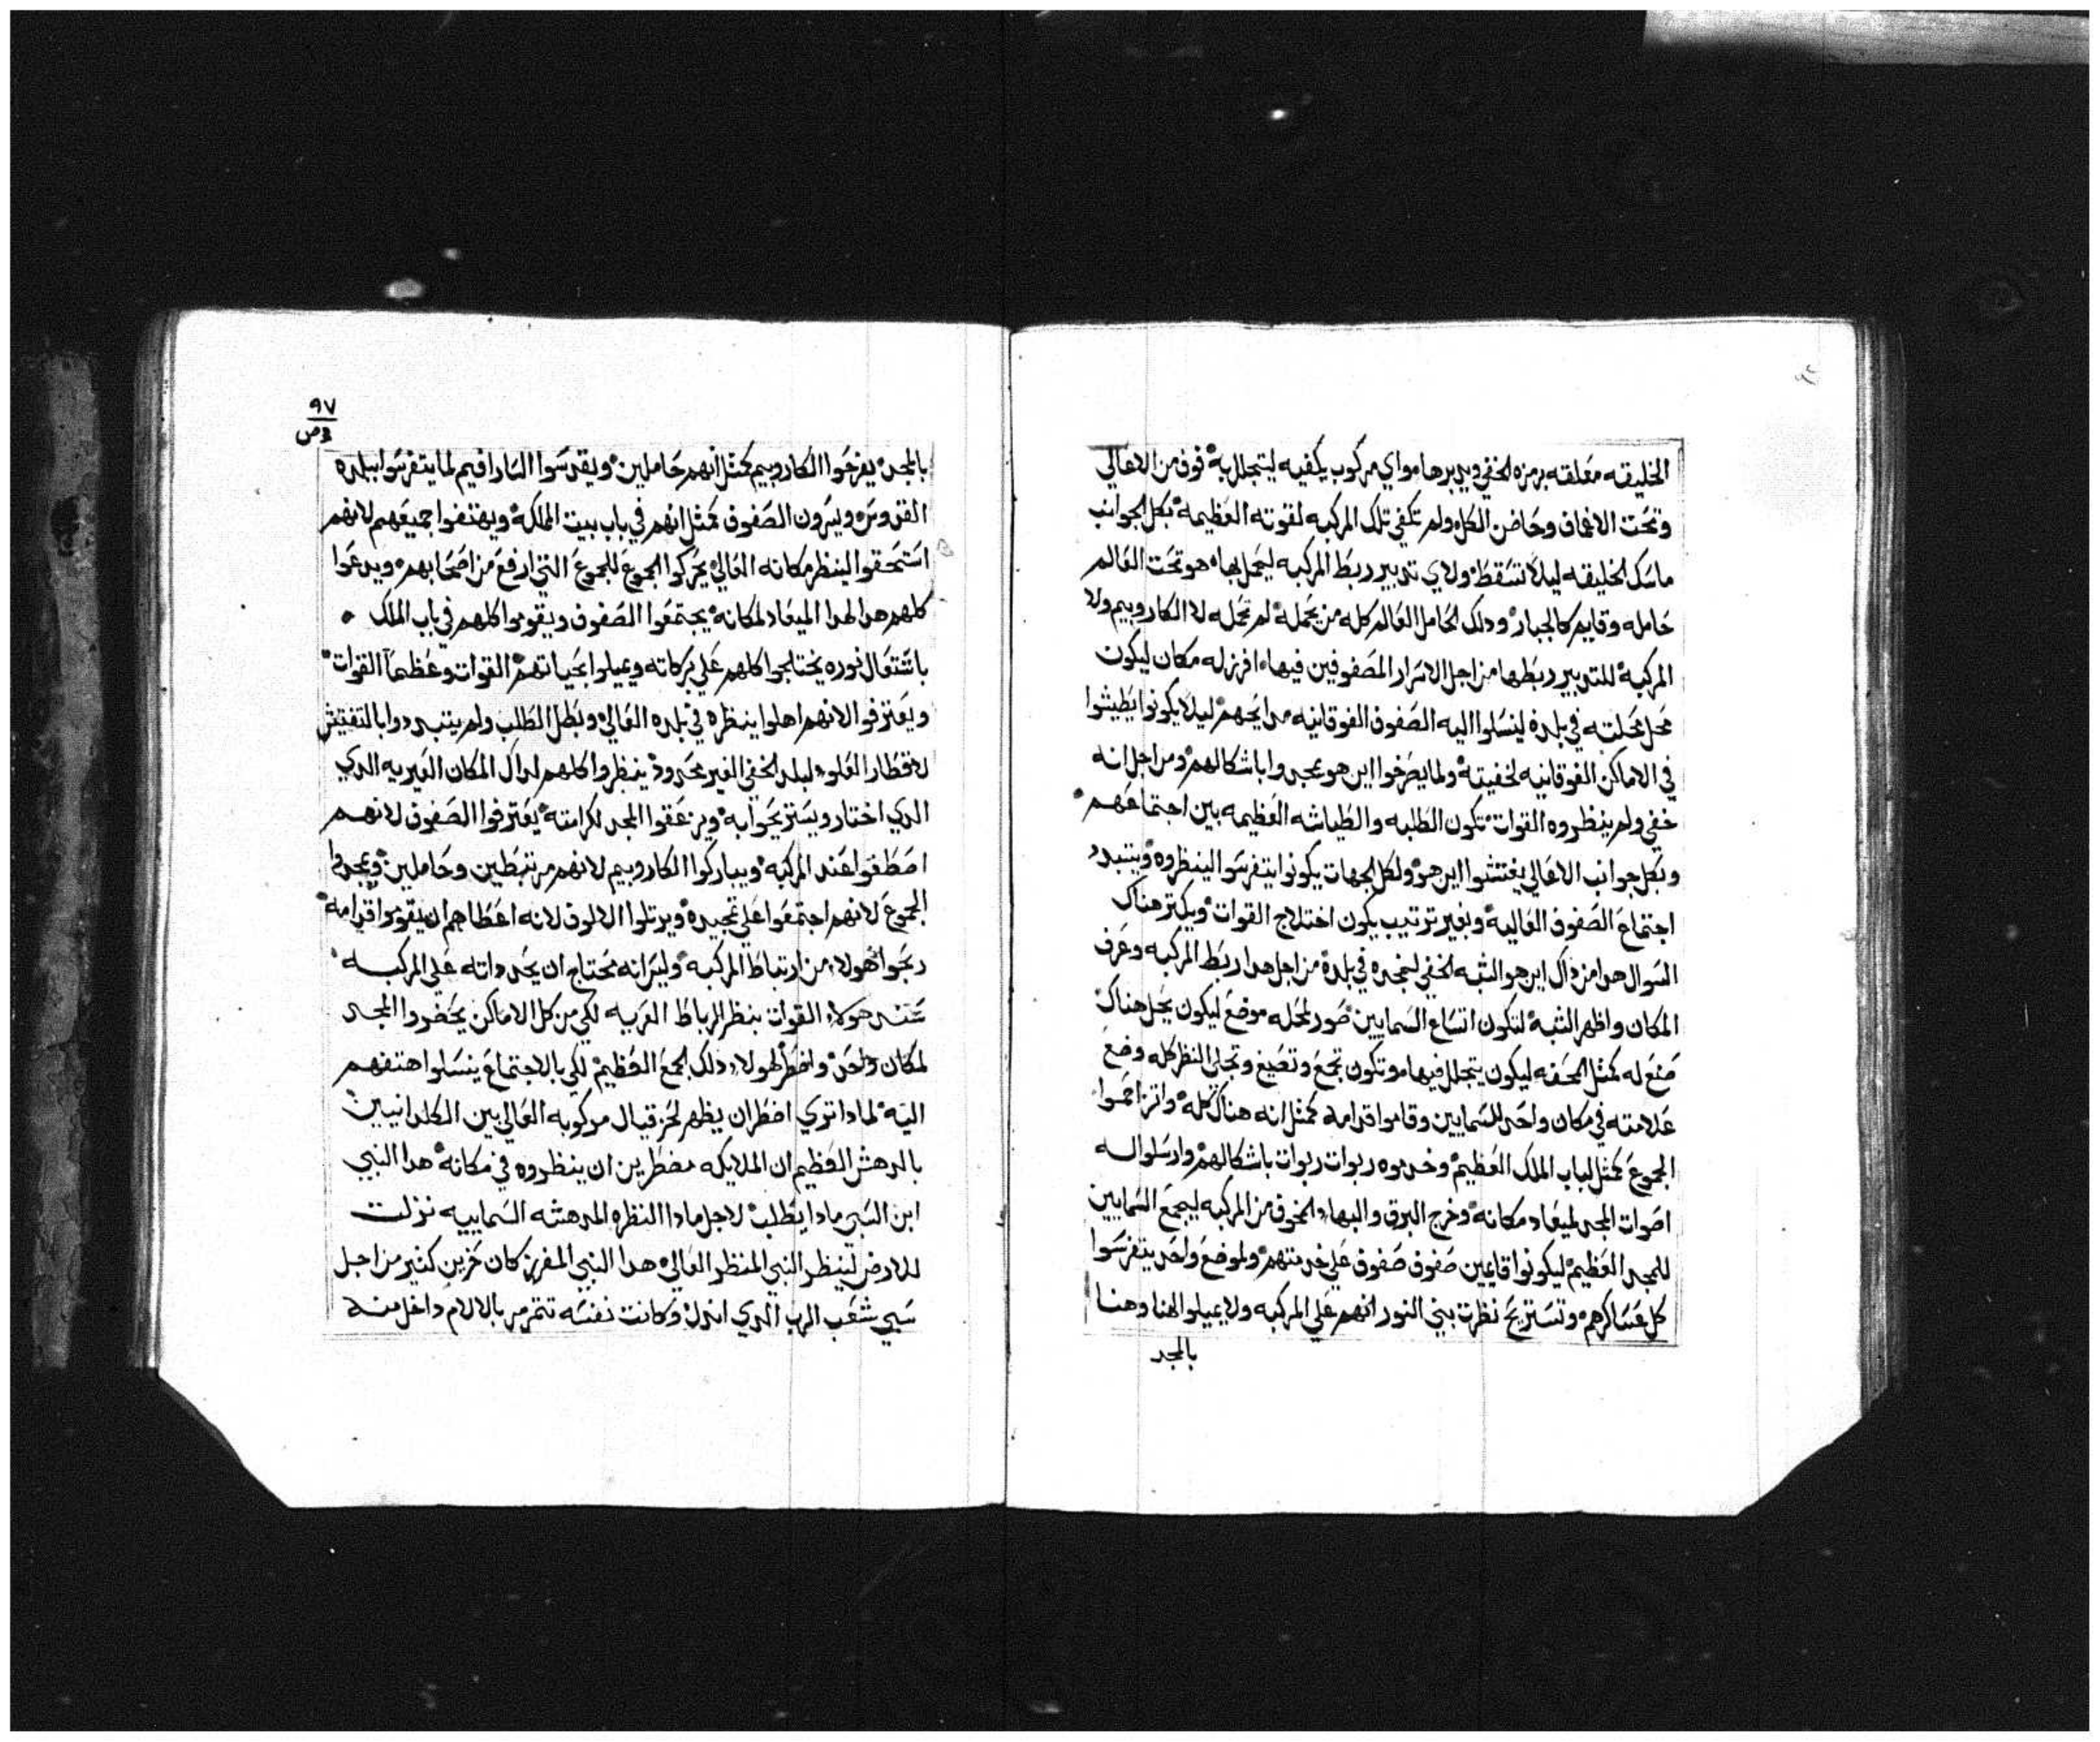 الخليقه معلقه برمزه الخفي ويدبرها واي مركوب يكفيه ليتجلل به فوق من الاعالي
وتحت الاعماق وحاضن الكل ولم تكفي تلك المركبه لقوته العظيمه بكل الجوانب
ماسك الخليقه ليلا تسقط ولاي تدبير ربط المركبه ليحمل بها هو تحت العالم
حامله وقايم كالجبار ودلك الحامل العالم كله من يحمله لم تحمله لا الكاروبيم ولا
المركبه للتدبير ربطها من اجل الاسرار المصفوفين فيها افرز له مكان ليكون
محل محلته في بلده لينسلوا اليه الصفوف الفوقانيه مدايحهم ليلا يكونوا يطيشوا
في الاماكن الفوقانيه لخفيته ولما يصرخوا اين هو يمجدوا باشكالهم ومن اجل انه
خفي ولم ينظروه القوات تكون الطلبه والطياشه العظيمه بين اجتماعهم
وبكل جوانب الاعالي يفتشوا اين هو ولكل الجهات يكونوا يتفرسوا لينظروه ويتبدد
اجتماع الصفوف العاليه وبغير ترتيب يكون اختلاج القوات ويكتر هناك
السوال هدا من داك اين هو الشبه الخفي لنمجده في بلده من اجل هدا ربط المركبه وعرف
المكان واظهر الشبه لتكون اتساع السمايين صور لمحله موضع ليكون يحل هناك
صنع له كمثل المحفه ليكون يتجلل فيها وتكون تجمع وتضيغ وتجلي النظر كله وضع
علامته في مكان واحد للسمايين وقاموا قدامه كمثل انه هناك كله واتزاحموا
الجموع كمثل لباب الملك العظيم وخدموه ربوات ربوات باشكالهم وارسلوا له
اصوات المجد لميعاد مكانه وخرج البرق والبهاء والخوف من المركبه ليجمع السمايين
للمجد العظيم ليكونوا قايمين صفوف صفوف علي خدمتهم ولموضع واحد يتفرسوا
كل عساكرهم وتستريح نظرت بني النور انهم علي المركبه ولا يميلوا لهنا وهنا
بالمجد
٩٧
بالمجد يفرحوا الكاروبيم كمثل انهم حاملين ويقدسوا السارافيم لما يتفرسوا ببلده
القدوس ويسرون الصفوف كمثل انهم في باب بيت الملكه ويهتفوا جميعهم لانهم
استحقوا لينظر مكانه العالي يحركوا الجموع للجموع التي ارفع من اصحابهم ويدعوا
كلهم هدا لهدا الميعاد لمكانه يجتمعوا الصفوف ويقوموا كلهم في باب الملك
باشتعال نوره يختلجوا كلهم علي بركاته ويميلوا بحياتهم القوات وعظما القوات
ويعترفوا لانهم اهلوا ينظره في بلده العالي وبطل الطلب ولم يتبددوا بالتفتيش
لاقطار العلو لبلد الخفي الغير محدود ينظروا كلهم لداك المكان الغيريه الدي
الدي اختار ويستريحوا به ويزعقوا المجد لكرامته يعترفوا الصفوف لانهم
اصطفوا عند المركبه ويباركوا الكاروبيم لانهم مرتبطين وحاملين ويمجدوا
الجموع لانهم اجتمعوا علي تمجيده ويرتلوا الالوف لانه اعطاهم ان يقوموا قدامه
ربحوا هولاء من ارتباط المركبه وليس انه محتاج ان يحد داته علي المركبه
عند هولاء القوات بنظر الرباط الغريبه لكي من كل الاماكن يحضروا المجد
لمكان واحد واضطر لهولاء دلك الجمع العظيم لكي بالاجتماع ينسلوا هتفهم
اليه لمادا تري اضطر ان يظهر لحزقيال مركوبه العالي بين الكلدانيين
بالدهش العظيم ان الملايكه مضطرين ان ينظروه في مكانه هدا النبي
ابن السبي مادا يطلب لاجل مادا النظره المدهشه السماييه نزلت
للارض لينظر النبي المنظر العالي هدا النبي المفرز كان حزين كتير من اجل
سبي شعب الرب الدي اندل وكانت نفسه تتمرمر بالالام داخل منه